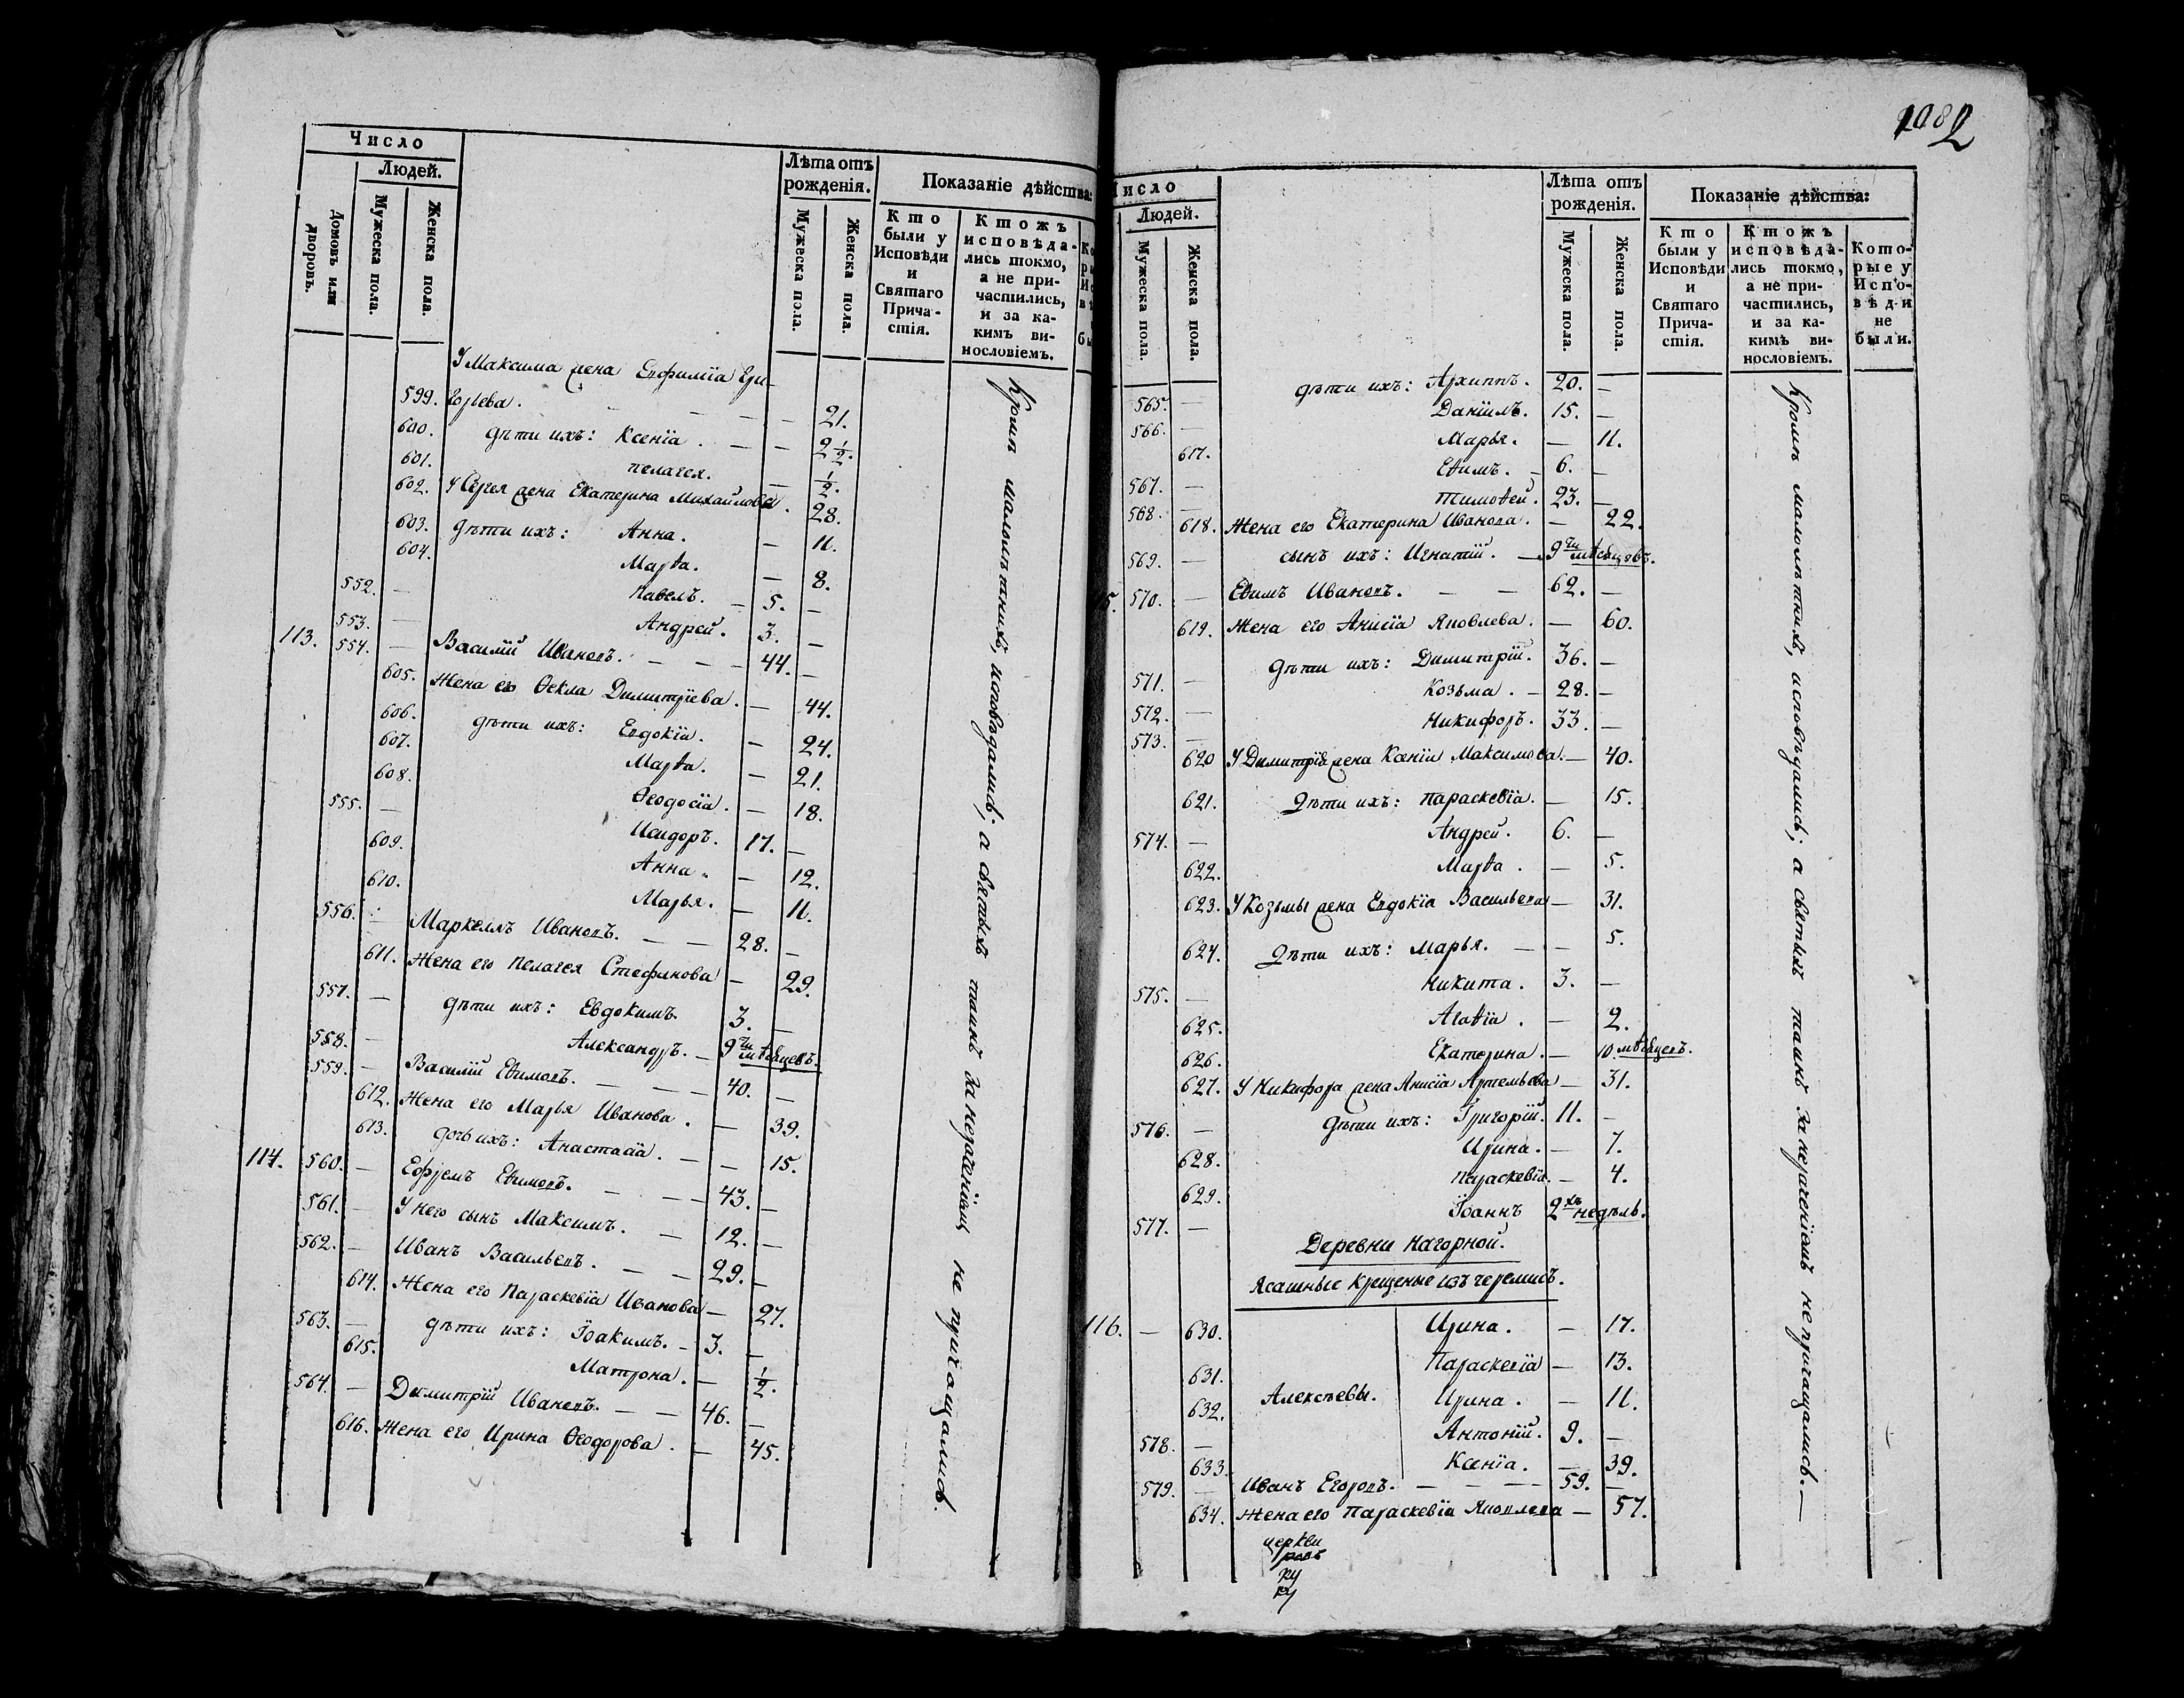 Число
Людей.
Домовъ или дворовъ.
Мужеска пола.
Женска пола.
Лѣта отъ рожденія.
Мужеска пола.
Женска пола.
Показаніе дѣйства:
Кто были у Исповѣди и Святаго Причастія.
Ктожъ исповѣдались токмо, а не причастились, и за какимъ винословіемъ.
У Максима жена Евфиміа Гри-
599. горьева. — — — 21.
600. дѣти ихъ: Ксеніа. — — 2 1/2.
601. Пелагея. — 1/2.
602. У Сергея жена Екатерина Михайлова. 28.
603. дѣти ихъ: Анна. — 11.
604. Марѳа. — 8.
552. — Павелъ. — 5. —
553. — Андрей. 3. —
113. 554. — Василій Ивановъ. — — — 44. —
605. Жена его Ѳекла Димитріева. — 44.
606. дѣти ихъ: Евдокіа. — 24.
607. Марѳа. — 21.
608. Ѳеодосіа. — 18.
555. — Исидоръ. 17. —
609. Анна. — 12.
610. Марья. — 11.
556. — Маркеллъ Ивановъ. — — 28. —
611. Жена его Пелагея Стефанова — 29.
557. — дѣти ихъ: Евдокимъ 3. —
558. — Александръ. — 9ти мѣсяцевъ.
559. — Василій Еѳимовъ. — — — 40. —
612. Жена его Марья Иванова. — 39.
613. дочь ихъ: Анастасіа. — — 15.
114. 560. — Ефремъ Еѳимовъ. — — — 43. —
561. — У него сынъ Максимъ. — 12. —
562. — Иванъ Васильевъ. — — 29. —
614. Жена его Параскевіа Иванова — 27.
563. — дѣти ихъ: Іоакимъ. — 3. —
615. Матрона. — 1/2.
564. — Димитрій Ивановъ. — — 46. —
616. Жена его Ирина Ѳеодорова. — 45.
Кромѣ малолѣтнихъ, исповѣдались; а святыхъ таинъ за нераченіемъ не причащались.
1082
Число
Людей.
Мужеска пола.
Женска пола.
Лѣта отъ рожденія.
Мужеска пола.
Женска пола.
Показаніе дѣйства:
Кто были у Исповѣди и Святаго Причастія.
Ктожъ исповѣдались токмо, а не причастились, и за какимъ винословіемъ.
Которые у Исповѣди не были.
565. — дѣти ихъ: Архиппъ. 20. —
566. — Даніилъ. 15. —
617. Марья. — 11.
567. — Еѳимъ. — 6. —
568. — Тимоѳей. 23. —
618. Жена его Екатерина Иванова. — 22.
569. — сынъ ихъ: Игнатій. — 9ти мѣсяцевъ.
5. 570. — Еѳимъ Ивановъ. — — 62. —
619. Жена его Анисіа Яковлева. — 60.
571. — дѣти ихъ: Димитрій. 36. —
572. — Козьма. — 28. —
573. — Никифоръ. 33. —
620 У Димитріа жена Ксеніа Максимова. — 40.
621. Дѣти ихъ: Параскевіа. — 15.
574. — Андрей. 6. —
622. Марѳа. — 5.
623. У Козьмы жена Евдокіа Васильева — 31.
624. Дѣти ихъ: Марья. — — 5.
575. — Никита. 3. —
625. Агаѳіа. — 2.
626. Екатерина. — 10. мѣсяцевъ.
627. У Никифора жена Анисіа Артемьева — 31.
576. — Дѣти ихъ: Григорій. 11. —
628. Ирина. — 7.
629. Параскевіа. — 4.
577. — Іоаннъ 2хъ недѣль.
Деревни Нагорной.
Ясашные крещеные изъ черемисъ.
116. — 630. Ирина. — 17.
631. Параскевіа — 13.
632. Алексѣевы. Ирина. — 11.
578. — Антоній. 9. —
633. Ксеніа. — 39.
579. — Иванъ Егоровъ. — — — 59. —
634. Жена его Параскевіа Яковлева — 57.
церкви
Кромѣ малолѣтнихъ, исповѣдались; а святыхъ таинъ за нераченіемъ не причащались. —